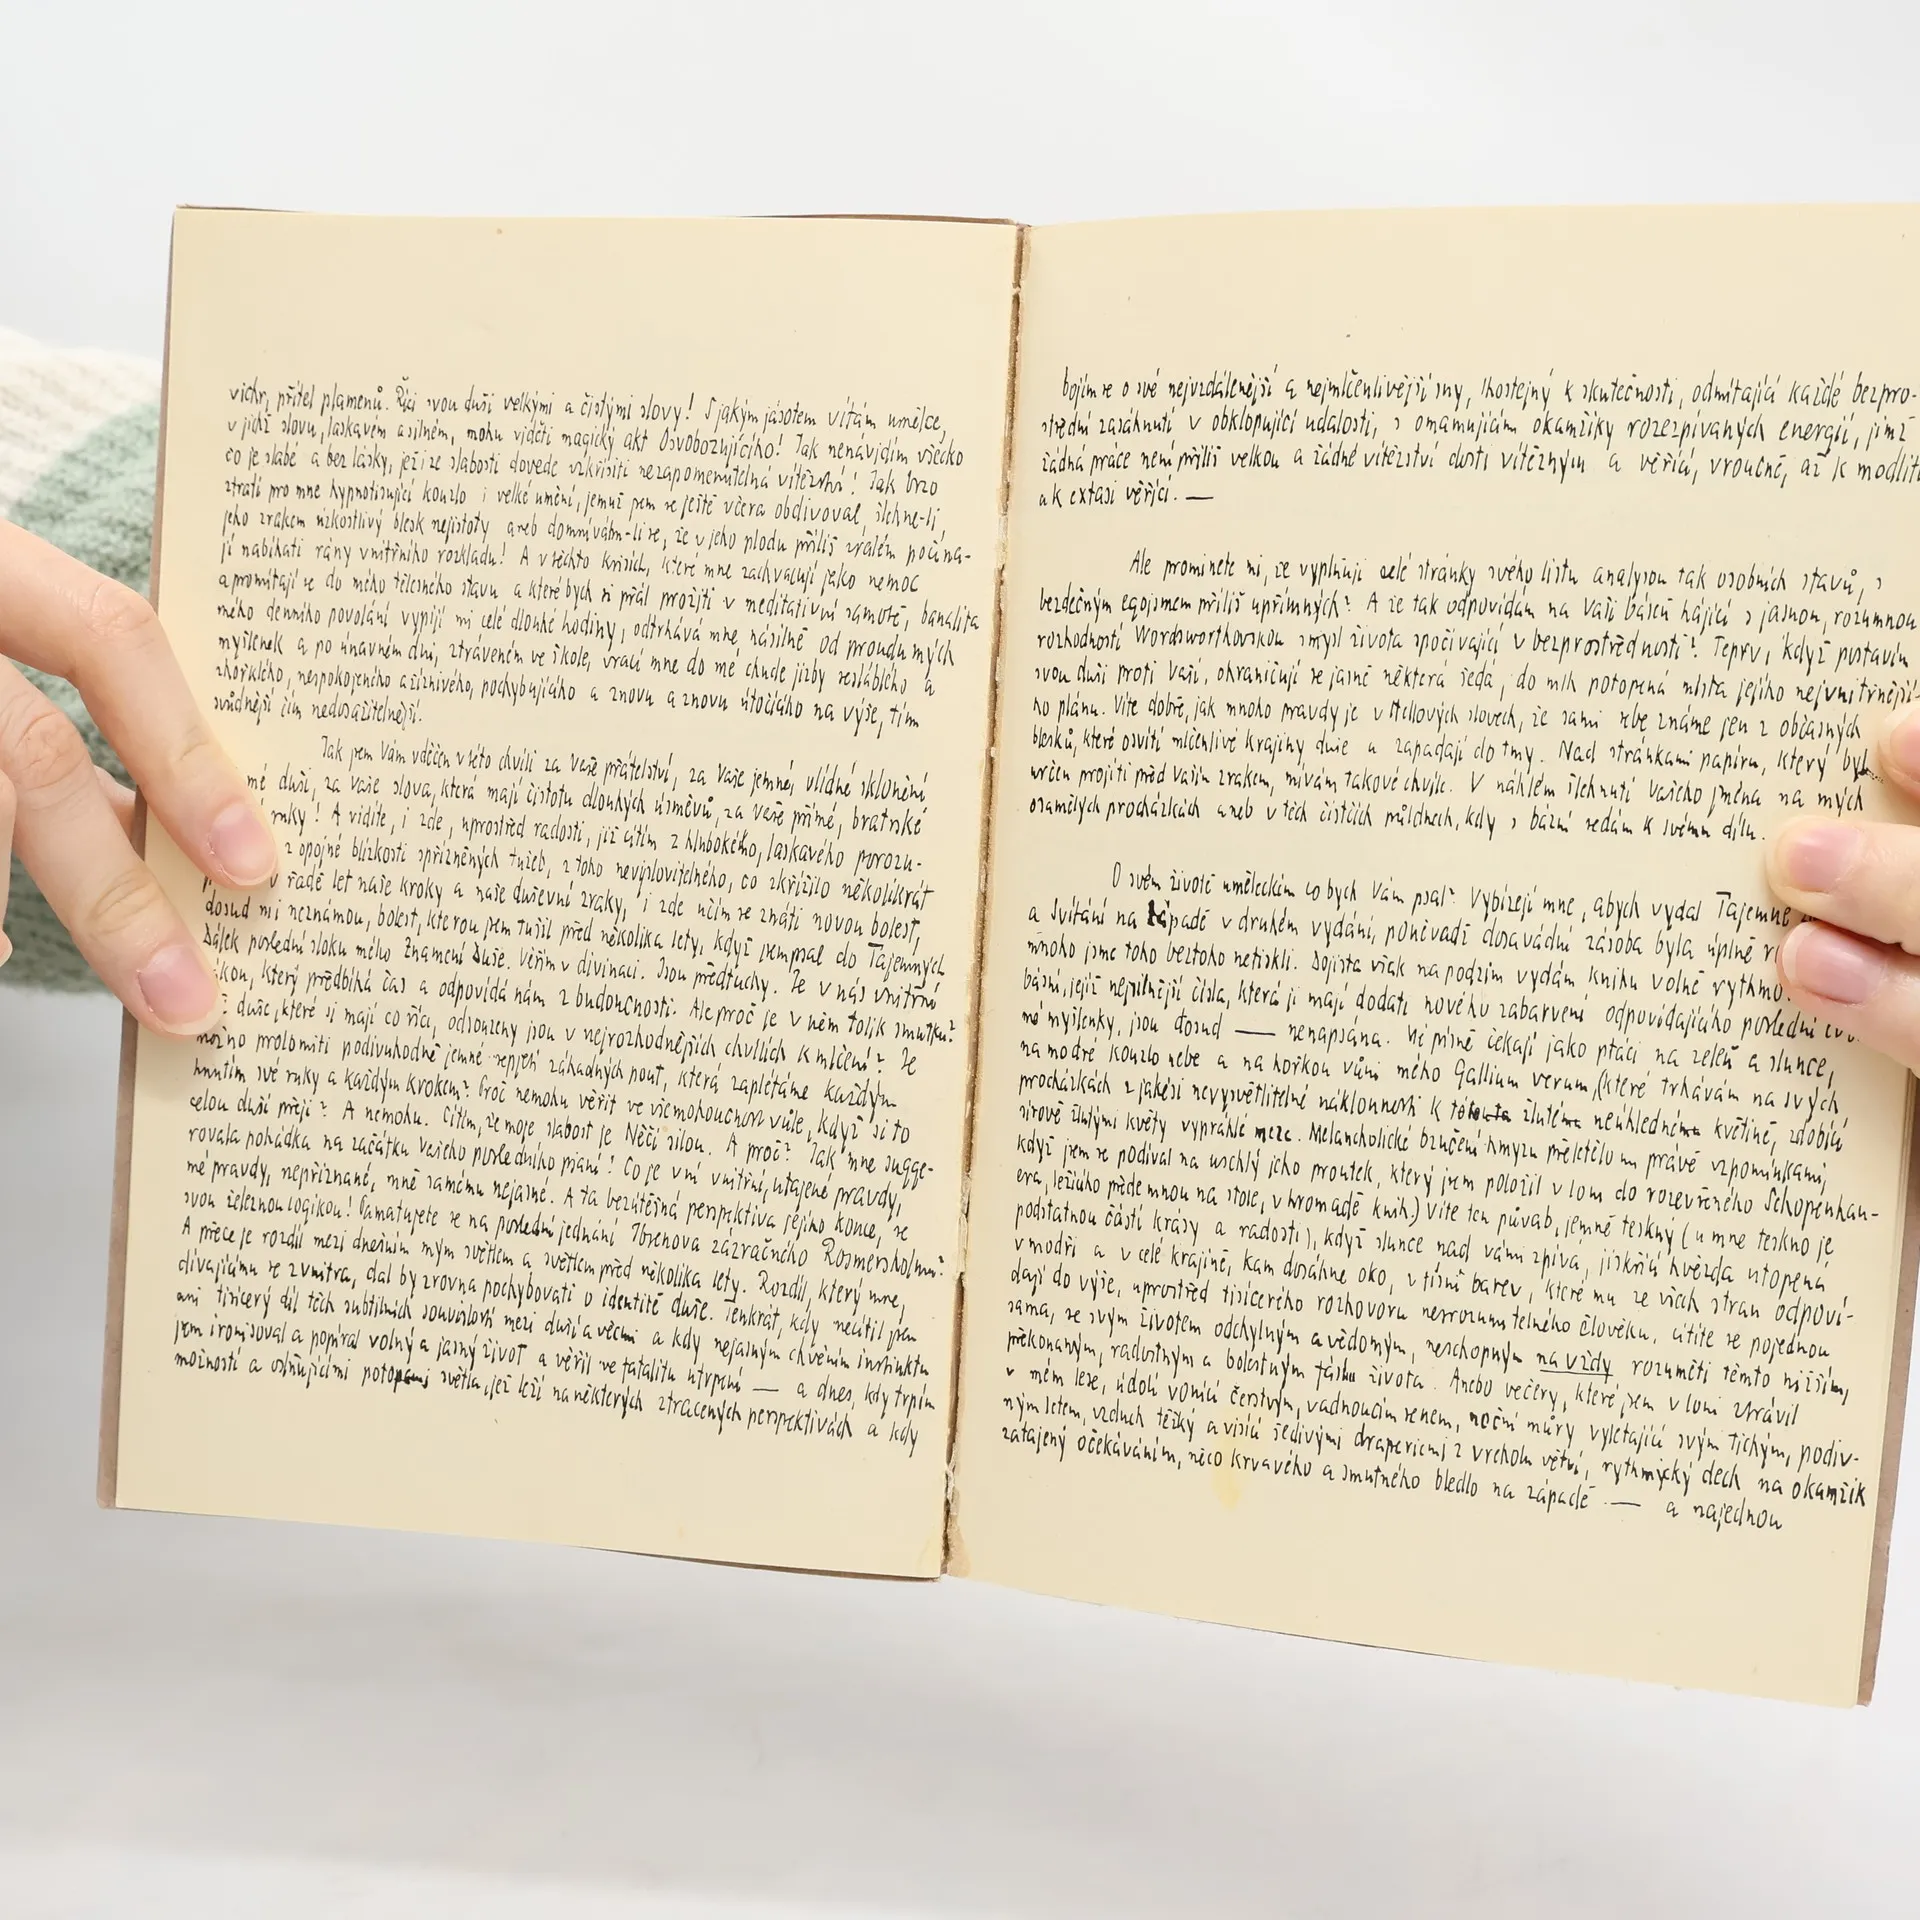 vichr, přítel plamenů. Říci svou duši velkými a čistými slovy! S jakým jásotem vítám umělce,
v jichž slovu, laskavém a silném, mohu viděti magický akt Osvobozujícího! Jak nenávidím všecko
co je slabé a bez lásky, jež i ze slabosti dovede vzkřísiti nezapomenutelná vítězství! Jak brzo
ztratí pro mne hypnotisující kouzlo i velké umění, jemuž jsem se ještě včera obdivoval, šlehne-li
jeho zrakem úzkostlivý blesk nejistoty aneb domnívám-li se, že v jeho plodu příliš zralém počína-
jí nabíhati rány vnitřního rozkladu! A v těchto krisích, které mne zachvacují jako nemoc
a promítají se do mého tělesného stavu a které bych si přál prožíti v meditativní samotě, banalita
mého denního povolání vypíjí mi celé dlouhé hodiny, odtrhává mne násilně od proudu mých
myšlenek a po únavném dni, ztráveném ve škole, vrací mne do mé chudé jizby sesláblého a
zhořklého, nespokojeného a žíznivého, pochybujícího a znovu a znovu útočícího na výše, tím
svůdnější čím nedosažitelnější.
Jak jsem Vám vděčen v této chvíli za Vaše přátelství, za Vaše jemné, vlídné sklonění
mé duši, za Vaše slova, která mají čistotu dlouhých úsměvů, za Vaše přímé, bratrské
ruky! A vidíte, i zde, uprostřed radosti, již cítím z hlubokého, laskavého porozu-
z opojné blízkosti spřízněných tužeb, z toho nevýslovitelného, co zkřížilo několikrát
v řadě let naše kroky a naše duševní zraky, i zde učím se znáti novou bolest,
dosud mi neznámou, bolest, kterou jsem tušil před několika lety, když jsem psal do Tajemných
Dálek poslední sloku mého Znamení Duše. Věřím v divinaci. Jsou předtuchy. Je v nás vnitřní
který předbíhá čas a odpovídá nám z budoucnosti. Ale proč je v něm tolik smutku?
duše, které si mají co říci, odsouzeny jsou v nejrozhodnějších chvílích k mlčení? Je
možno prolomiti podivuhodně jemné sepjetí záhadných pout, která zaplétáme každým
hnutím své ruky a každým krokem? Proč nemohu věřit ve všemohoucnost vůle, když si to
celou duší přeji? A nemohu. Cítím, že moje slabost je Něčí silou. A proč? Jak mne sugge-
rovala pohádka na začátku Vašeho posledního psaní! Co je v ní vnitřní, utajené pravdy,
mé pravdy, nepřiznané, mně samému nejasné. A ta bezútěšná perspektiva jejího konce, se
svou železnou logikou! Pamatujete se na poslední jednání Ibsenova zázračného Rosmersholmu?
A přece je rozdíl mezi dnešním mým světlem a světlem před několika lety. Rozdíl, který mne,
dívajícímu se zvnitra, dal by zrovna pochybovati o identitě duše. Tenkrát, kdy necítil jsem
ani tisícerý díl těch subtilních souvislostí mezi duší a věcmi a kdy nejasným chvěním instinktu
jsem ironisoval a popíral volný a jasný život a věřil ve fatalitu utrpení — a dnes, kdy trpím
možností a oslňujícími potopami světla, jež leží na některých ztracených perspektivách a kdy
bojím se o své nejvzdálenější a nejmlčenlivější sny, lhostejný k skutečnosti, odmítající každé bezpro-
střední zasáhnutí v obklopující události, s omamujícím okamžiky rozezpívaných energií, jimž
žádná práce není příliš velkou a žádné vítězství dosti vítězným a věřící, vroucně, až k modlit
a k extasi věřící. —
Ale prominete mi, že vyplňuji celé stránky svého listu analysou tak osobních stavů, s
bezděčným egoismem příliš upřímných? A že tak odpovídám na Vaši báseň hájící s jasnou, rozumnou
rozhodností Wordsworthovskou smysl života spočívající v bezprostřednosti? Teprv, když postavím
svou duši proti Vaší, ohraničují se jasně některá šedá, do mlh potopená místa jejího nejvnitřnější-
ho plánu. Víte dobře, jak mnoho pravdy je v slovech, že sami sebe známe jen z občasných
blesků, které osvítí mlčenlivé krajiny duše a zapadají do tmy. Nad stránkami papíru, který byl
určen projíti před Vaším zrakem, mívám takové chvíle. V náhlém šlehnutí Vašeho jména na mých
osamělých procházkách aneb v těch čistších půldnech, kdy s bázní sedám k svému dílu.
O svém životě uměleckém co bych Vám psal? Vybízejí mne, abych vydal Tajemné
a Svítání na západě v druhém vydání, poněvadž dosavádní zásoba byla úplně
mnoho jsme toho beztoho netiskli. Dojista však na podzim vydám knihu volně rythmo
básní, jejíž nejsilnější čísla, která jí mají dodati nového zabarvení odpovídajícího poslední
mé myšlenky, jsou dosud — nenapsána. Mé písně čekají jako ptáci na zeleň a slunce,
na modré kouzlo nebe a na hořkou vůni mého Gallium verum, (které trhávám na svých
procházkách z jakési nevysvětlitelné náklonnosti k žlutému neúhlednému květině, zdobící
sírově žlutými květy vyprahlé meze. Melancholické bzučení hmyzu přelétělo mi právě vzpomínkami,
když jsem se podíval na uschlý jeho proutek, který jsem položil v loni do rozevřeného Schopenhau-
era, ležícího přede mnou na stole, v hromadě knih.) Víte ten půvab, jemně teskný (u mne teskno je
podstatnou částí krásy a radosti), když slunce nad vámi zpívá, jiskřící hvězda utopená
v modři a v celé krajině, kam dosáhne oko, v tísni barev, které mu ze všech stran odpoví-
dají do výše, uprostřed tisícerého rozhovoru nesrozumitelného člověku, cítíte se pojednou
sama, se svým životem odchylným a vědomým, neschopným na vždy rozuměti těmto nižším,
překonaným, radostným a bolestným fásím života. Anebo večery, které jsem v loni ztrávil
v mém lese, údolí vonící čerstvým, vadnoucím senem, noční můry vyletující svým tichým, podiv-
ným letem, vzduch těžký a visící šedivými draperiemi z vrcholu větví, rythmický dech na okamžik
zatajený očekáváním, něco krvavého a smutného bledlo na západě — a najednou